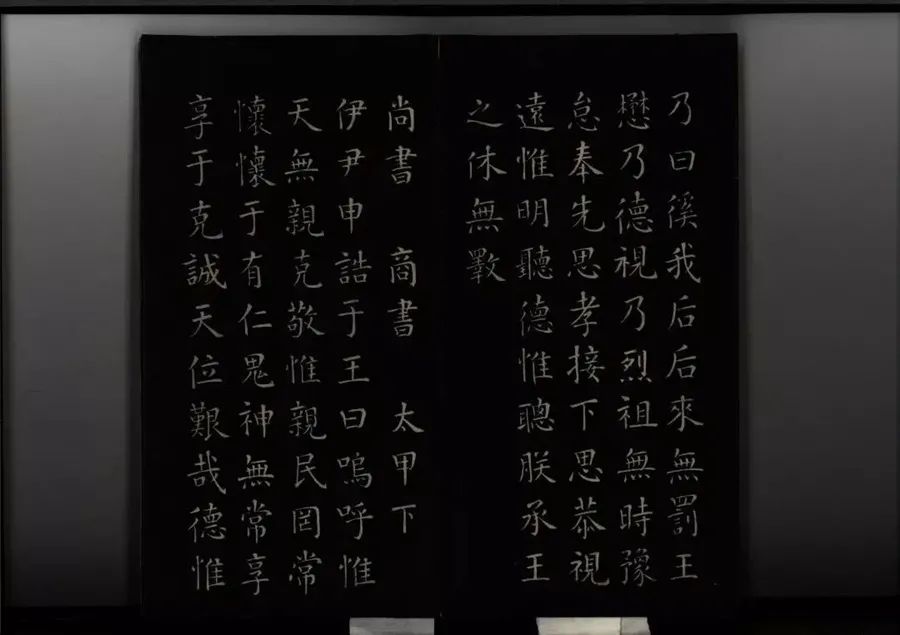 乃曰徯我后后來無罰王
懋乃德視乃烈祖無時豫
怠奉先思孝接下思恭視
遠惟明聽德惟聰朕承王
之休無斁
尚書 商書 太甲下
伊尹申誥于王曰嗚呼惟
天無親克敬惟親民罔常
懷懷于有仁鬼神無常享
享于克誠天位艱哉德惟